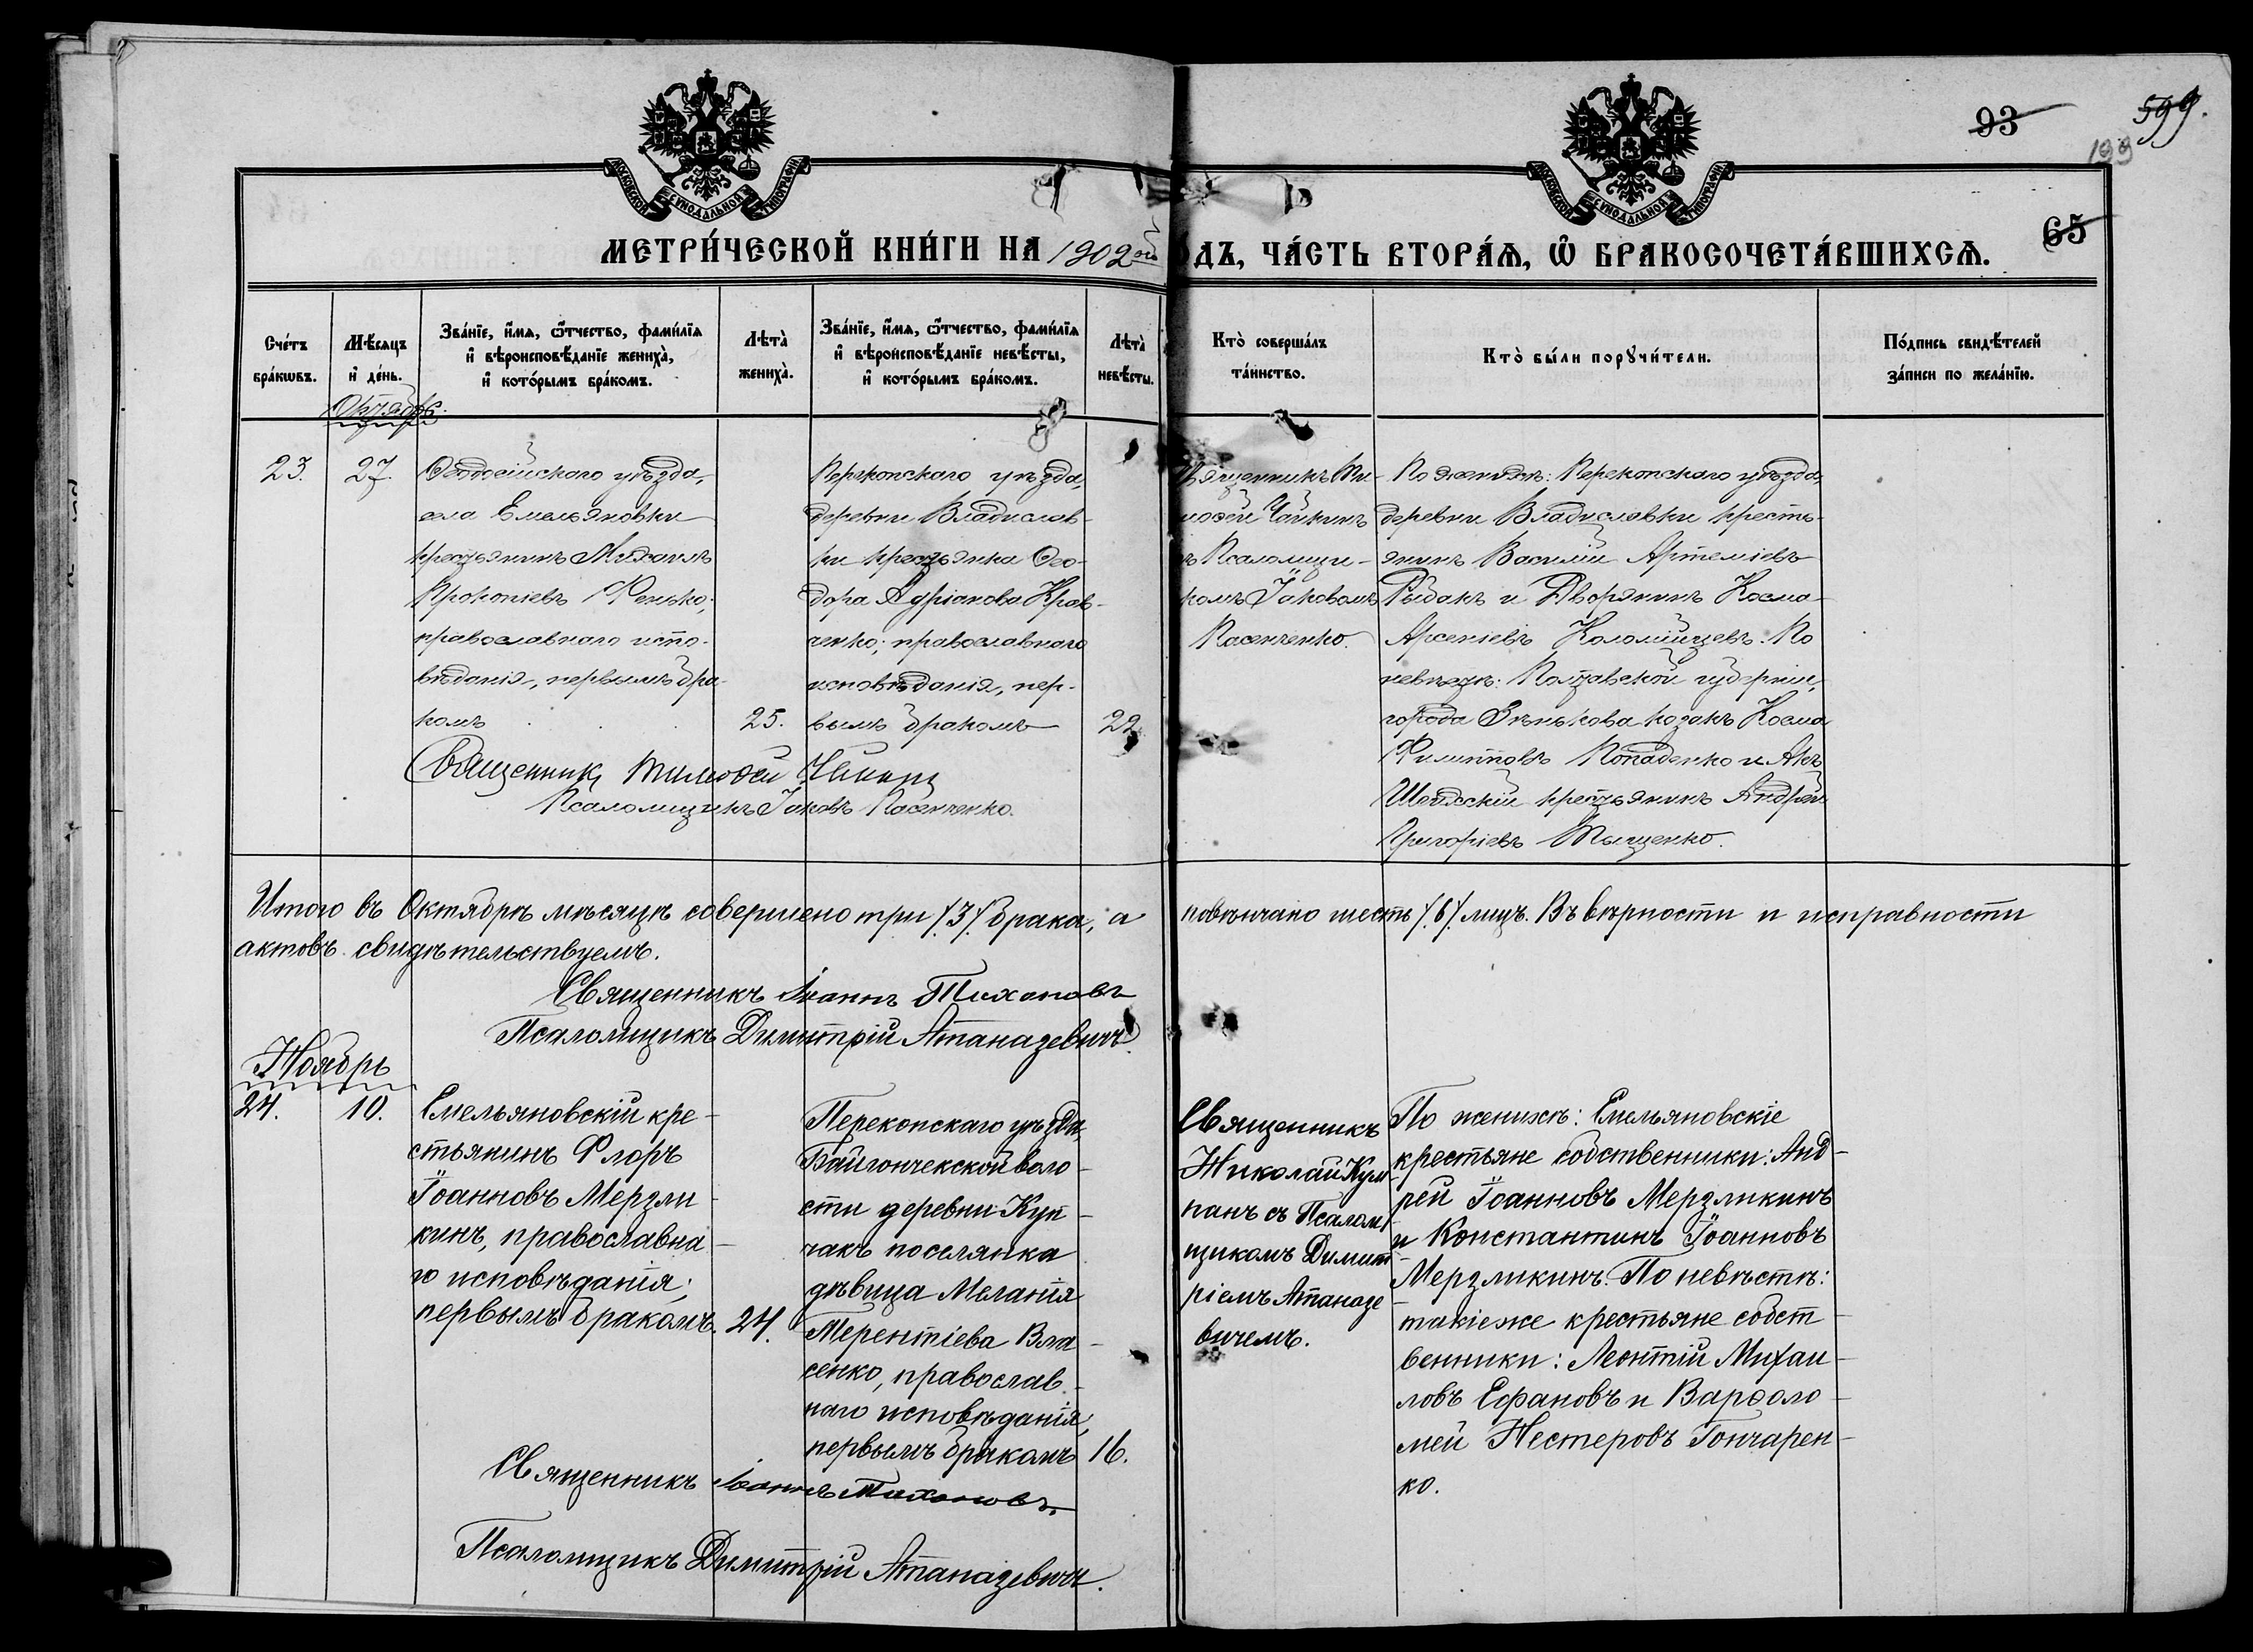 93
599.
199
МОСКОВСКОЙ СѴНОДАЛЬНОЙ ТИПОГРАФІИ
МОСКОВСКОЙ СѴНОДАЛЬНОЙ ТИПОГРАФІИ
65
МЕТРИ́ЧЕСКОЙ КНИ́ГИ НА 1902ой
ОДЪ, ЧА́СТЬ ВТОРА́Ѧ, Ѿ БРАКОСОЧЕТА́ВШИХСѦ.
Сче́тъ
бра́кѡвъ.
Мѣ́сѧцъ
и҆ де́нь.
Зва́нїе, и҆́мѧ, ѻ҆́тчество, фамѝлїѧ
и҆ вѣроисповѣ́данїе жениха̀,
и҆ кото́рымъ бра́комъ.
Лѣта̀
жениха̀.
Зва́нїе, и҆́мѧ, ѻ҆́тчество, фамѝлїѧ
и҆ вѣроисповѣ́данїе невѣ́сты,
и҆ кото́рымъ бра́комъ.
Лѣта̀
невѣ́сты.
Кто̀ соверша́лъ
та́инство.
Кто̀ бы́ли порꙋчи́тели.
По́дпись свидѣ́телей
за́писи по жела́нїю.
Октябрь.
23.
27.
Ѳеодосійскаго уѣзда,
села Емельяновки
крестьянинъ Михаилъ
Прокопіевъ Фенько;
православнаго испо-
вѣданія, первымъ бра-
комъ
25.
Перекопскаго уѣзда,
деревни Владислав-
ки крестьянка Ѳео-
дора Адріанова Крав-
ченко; православнаго
исповѣданія, пер-
вымъ бракомъ
22.
Священникъ Ти-
моѳей Чайкинъ
съ Псаломщи-
комъ Іаковомъ
Пасенченко.
По женихѣ: Перекопскаго уѣзда,
деревни Владиславки кресть-
янинъ Василій Артеміевъ
Рыбакъ и Дворянинъ Косма
Арсеніевъ Коломійцевъ. По
невѣстѣ: Полтавской губерніи,
города Зѣнькова козакъ Косма
Филипповъ Попаденко и Акъ
Шейхскій крестьянинъ Андрей
Григоріевъ Тыщенко.
Священникъ Тимоѳей Чайкинъ
Псаломщикъ Іаковъ Пасенченко.
Итого въ Октябрѣ мѣсяцѣ совершено три /3/ брака, а повѣнчано шесть /6/ лицъ. Въ вѣрности и исправности
актовъ свидѣтельствуемъ.
Священникъ Іоаннъ Тихоновъ
Псаломщикъ Димитрій Атаназевичъ.
Ноябрь
24.
10.
Емельяновскій кре-
стьянинъ Флоръ
Іоанновъ Мерзли-
кинъ, православна-
го исповѣданія;
первымъ бракомъ.
24.
Перекопскаго уѣзда,
Байгончекской воло-
сти деревни Куп-
чакъ поселянка
дѣвица Меланія
Терентіева Вла-
сенко, православ-
наго исповѣданія,
первымъ бракомъ
16.
Священникъ
Николай Кум
панъ съ Псалом
щикомъ Димит
ріемъ Атаназе
вичемъ.
По женихѣ: Емельяновскіе
крестьяне собственники: Анд-
рей Іоанновъ Мерзликинъ
и Константинъ Іоанновъ
Мерзликинъ. По невѣстѣ:
такіе же крестьяне собст-
венники: Леонтій Михаи-
ловъ Ефановъ и Варѳоло-
мей Нестеровъ Гончарен-
ко.
Священникъ Іоаннъ Тихоновъ.
Псаломщикъ Димитрій Атаназевичъ.